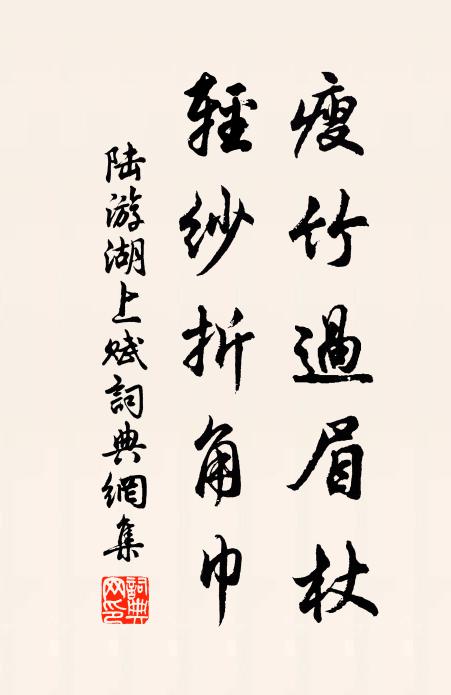 瘦竹過眉杖
輕紗折角巾
陸游湖上賦詞典網集
詞典網印